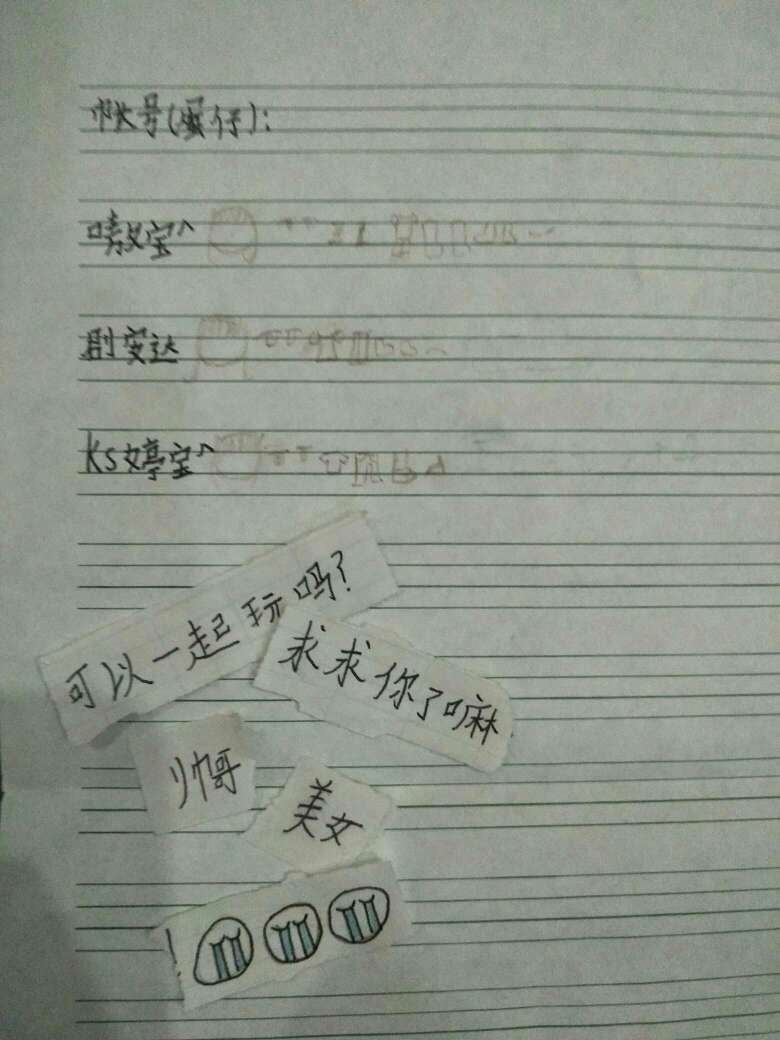 帐号(蛋仔):
嗷宝^
剧安达
Ks婷宝^
可以一起玩吗?
求求你了嘛
帅哥
美女
!